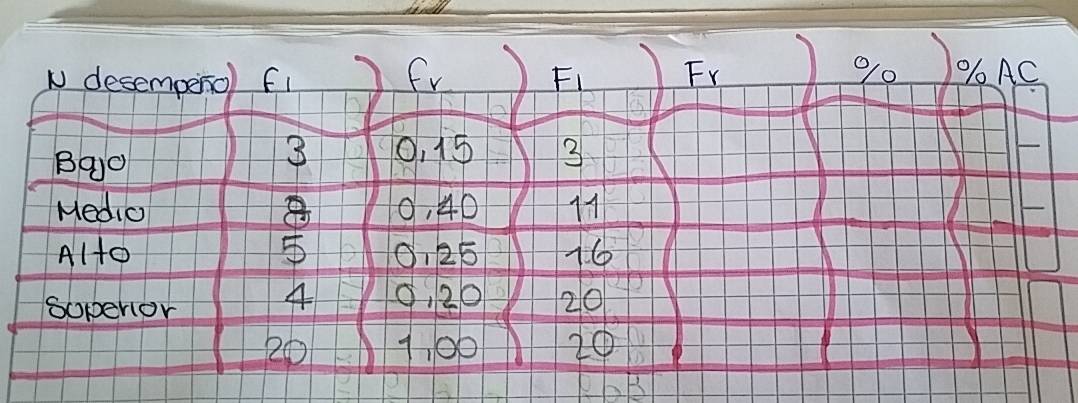 N desempeño fi fr Fi Fr % % AC
Bajo 3 0,15 3
Medio 8 0,40 11
Alto 5 0,25 16
Superior 4 0,20 20
20 1,00 20